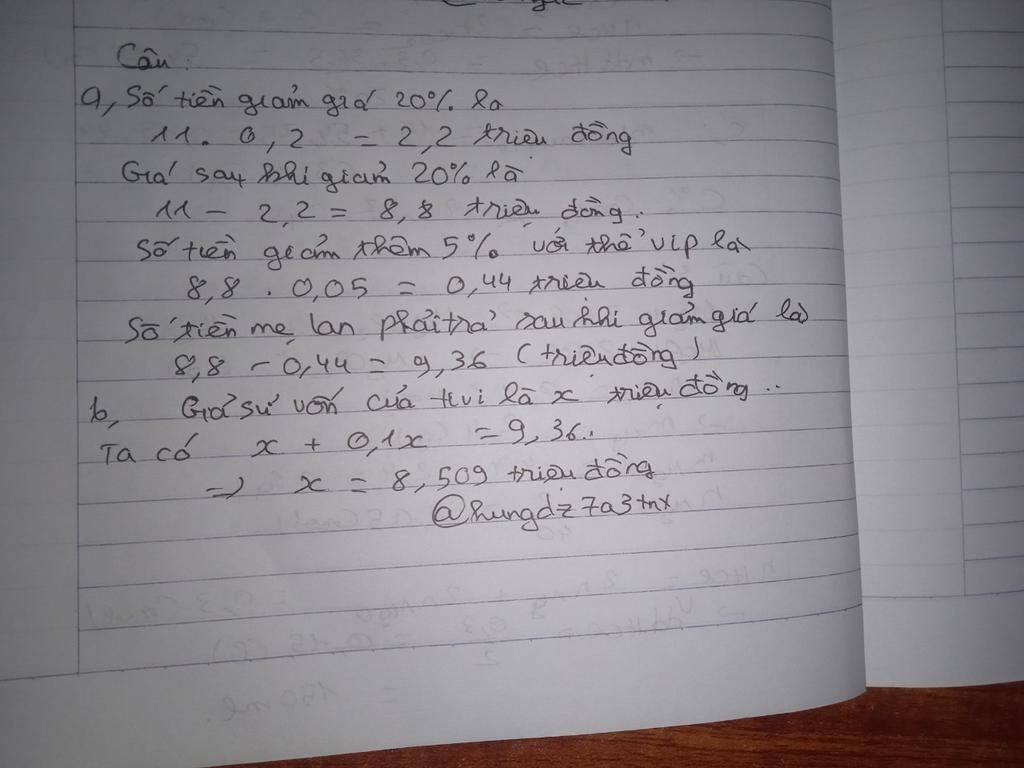 Câu:
a, Số tiền giảm giá 20% la
11. 0,2 = 2,2 triệu đồng
Giá sau khi giảm 20% là
11 - 2,2 = 8,8 triệu đồng.
Số tiền giảm thêm 5% với thẻ vip là
8,8 . 0,05 = 0,44 triệu đồng
Số tiền mẹ lan phải trả sau khi giảm giá là
8,8 - 0,44 = 9,36 (triệu đồng)
b, Giả sử vốn của tivi là x triệu đồng..
Ta có x + 0,1x = 9,36.
=> x = 8,509 triệu đồng
@hungdz7a3tnx